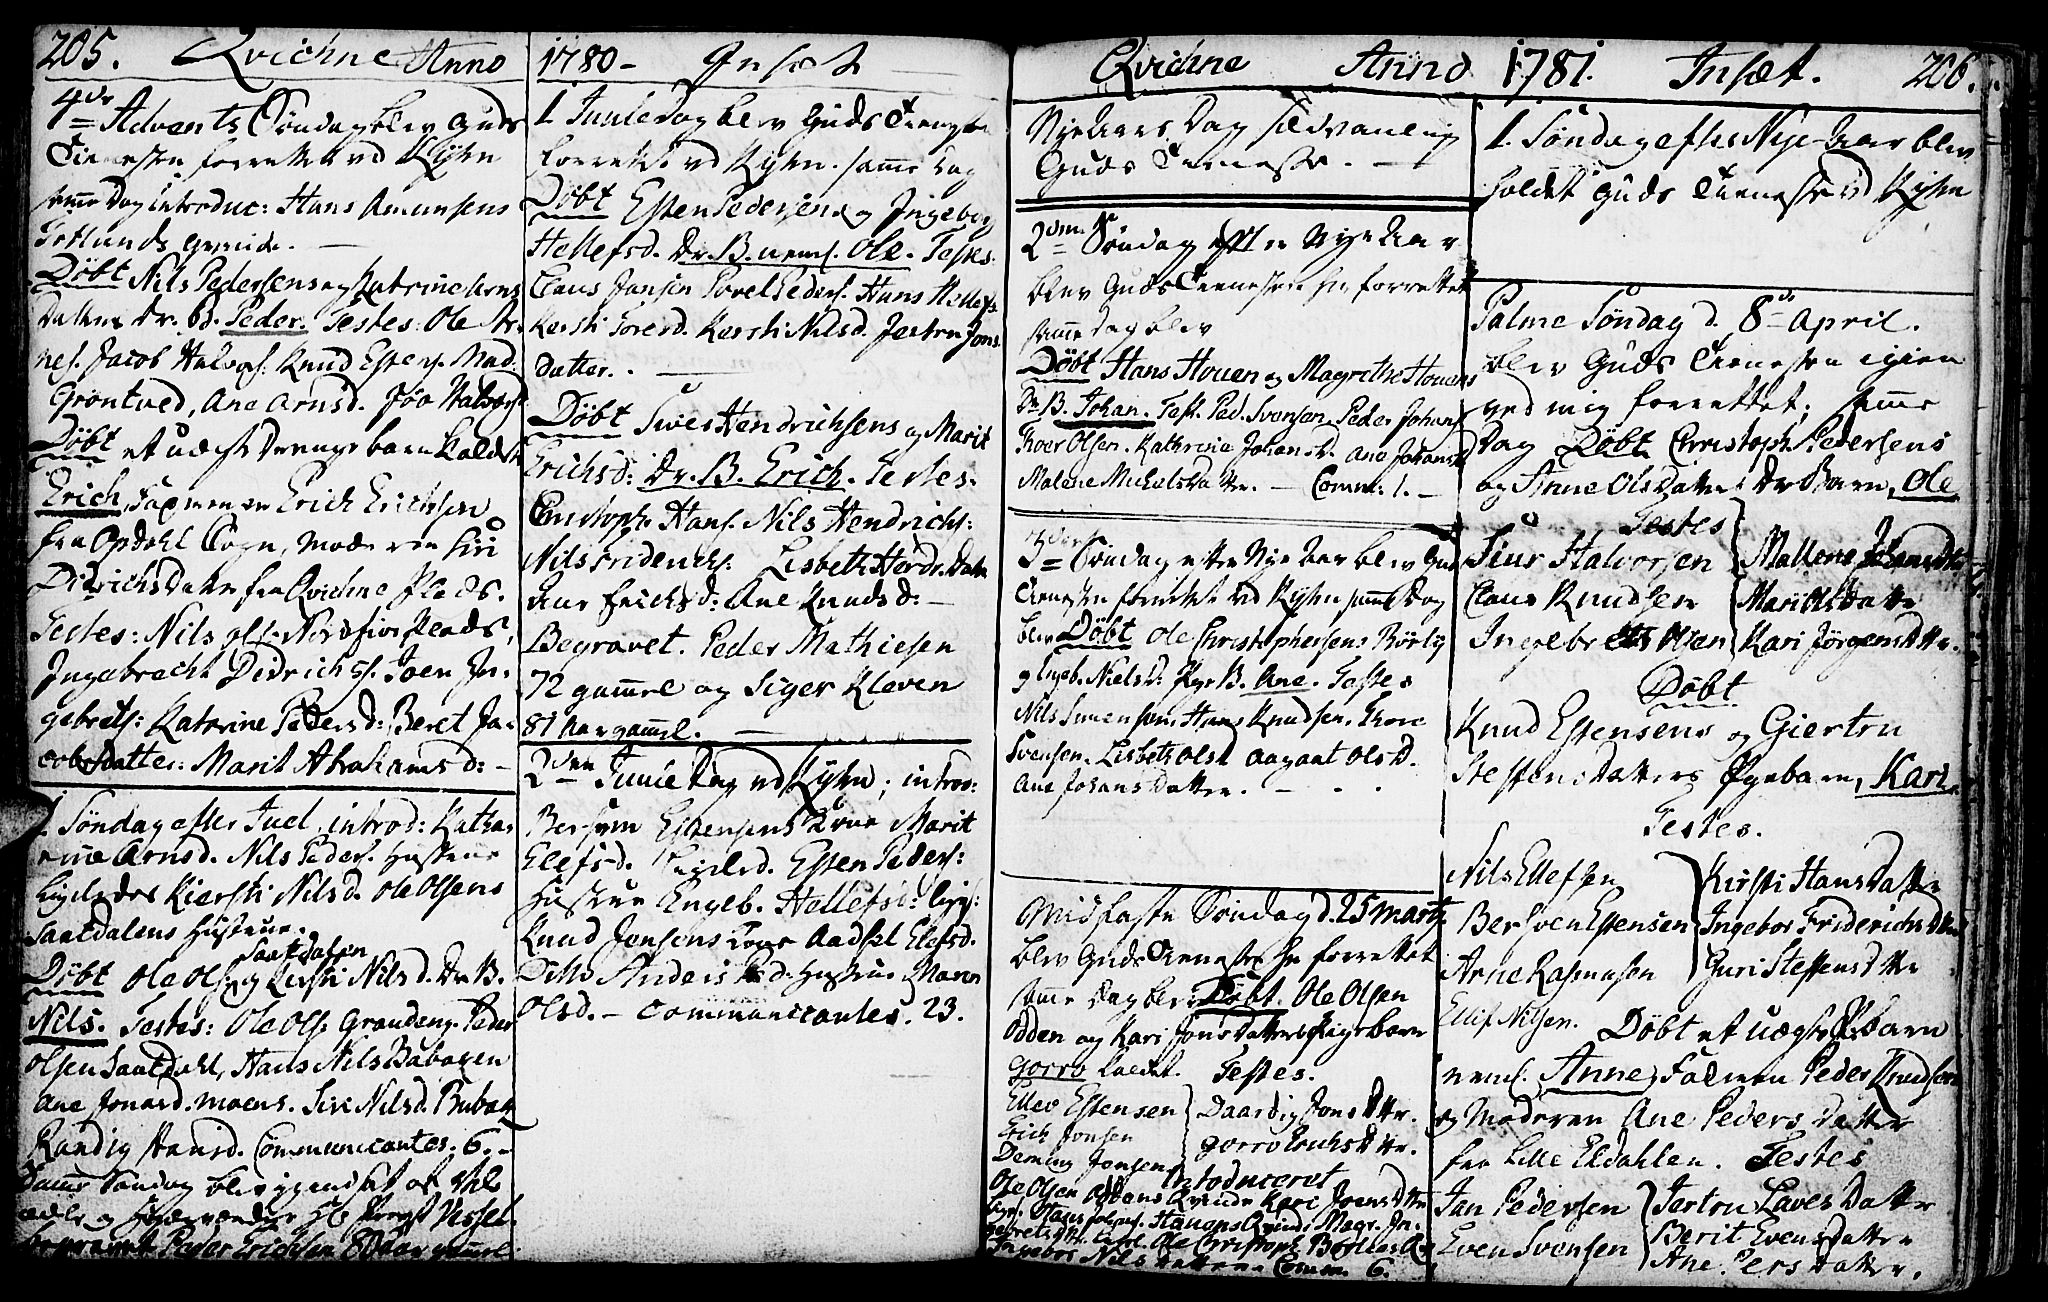 205. Qvichne Anno
4de Advents Söndag blev Guds
Tienesten forrettet ved Kyhn
samme Dag introduc: Hans Amunsens
Döbt Nils Pedersens og Katrine Arns
Datters Dr. bd. Peder. Testes: Ole Ar-
nes. Jacob Halvors: Knud Estens. Mad:
Gröntved, Ane Arnsd. Halvors
Döbt et uægte Drenge barn kaldet
Erich, Faderen er Erich Erichsen
fra Opdahl Sogn, Moderen Siri
Didrichs Datter fra Qvichne Præds.
Testes: Nils
Ingebrecht Didrichs. Joen In-
gebrets: Katarine Peders d: Beret Ja-
cobsdatter: Marit Abrahams d: -
1 Söndag efter Juel, introd: Katha-
rine Arnsd. Nils Peders. Hustrue
Ligeledes Kiersti Nilsd. Ole Olsens
Saatdalens Hustrue.
Saatdalen
Döbt Ole Ols. og Kersti Nilsd. Dr B.
Nils. Testes: Ole Ols. Grauden. Peder
Olsen Saatdahl, Hans Nils Bubaken
Ane Jonasd. moens. Siri Nilsd. Bubak
Randig Hansd. Communicantes. 6. -
Samme Söndag blev
Peder Erichsen 80 aar gammel.
1780 - Insæt
1. Juule Dag blev Guds Tieneste
forrettet ved Kyhn. samme Dag
Döbt Esten Pedersens og Ingebor
Hellefsd. Dr. B. nemf. Ole. Testes.
Claus Jansen Povel Peders. Hans Hellefs.
Kersti Torerd. Kersti Nilsd. Jertru Jons
Datter. -
Döbt Siver Hendrichsens og Marit
Erichsd: Dr. B. Erich. Testes:
Christoph. Hans. Nils Hendrichs:
Nils Friderichs: Lisbeth Hendr. Datter
Erichsd: Ane Knudsd: -
Begravet. Peder Mathiesen
72 gammel og Siger Kleven
81 Aar gammel. -
2den Juule Dag ved Kyhn; introd:
Bersven Estensens Kone Marit
Elefsd. Ligeled. Esten Peders:
Hustrue Engeb. Hellefsd: lige:
Knud Jonsens Kone Aadsel Elefsd.
Ditto Anders Hustrue Maren
Olsd. - Communicantes. 23.
Qvichne Anno 1781. Insæt. 206.
Nye Aars Dag sædvanlig
Guds Tieneste. -
2den Söndag efter Nye Aar
blev Guds Tienesten her forrettet
samme Dag blev
Döbt Hans Houen og Magrethe Houens
Dr B. Johan. Test. Ped. Svensen, Peder Johans
Thoer Olsen. Kathrina Johansd. Ane Johansd
Malene Michels Datter. - Comm: 1. -
3die Söndag efter Nye Aar blev Guds
Tienesten forrettet ved Kyhn samme Dag
blev Döbt Ole Christophersens Börlig
og Engeb. Nielsd: Pige B. Ane. Testes
Nils Simensen, Hans Knudsen. Thore
Svensen. Lisbeth Olsd Aagaat Olsd.
Ane Johans Datter. -
Midfaste Söndag d. 25 Martz
blev Guds Tieneste her forrettet
samme Dag blev Döbt. Ole Olsen
Odden og Kari Jons Datters Pige barn
Gorro kaldet. Testes.
Ellev Estensen Daardig Jons Dtter.
Erich Jonsen Gorro Erichs Dtter.
Deming Jonsen
Introduceret
Ole Olsen Oddens Qvinde Kari Joens Dtter
Ole Christoph. Börlies
Ingebor Nils Datter. Comm. 6.
1. Söndag efter Nye-Aar blev
holdet Guds Tieneste ved Kyhn
Palme Söndag d. 8de April.
blev Guds Tienesten igien
ved mig forrettet; samme
Dag Döbt Christoph. Pedersens
og Anne Ols Datters Dr Barn, Ole
Testes
Siur Halvorsen Mallene Johansdtter
Claus Knudsen Mari Ols Datter
Ingebret Olsen Kari Jörgens Dtter.
Döbt
Knud Estensens og Giertru
Steffens Datters Pige barn, Kari
Testes.
Nils Ellefsen Kirsti Hans Datter
Bersven Estensen Ingebor Friderichs Dtter
Arne Rasmusen Guri Steffens Dtter
Ellif Nilsen. Döbt et uægte P. Barn
nemf. Anne, Faderen Peder Knudsen
og Moderen Ane Peders Datter
fra Lille Eldahlen. Testes
Jan Pedersen Jertru Laves Datter
Even Svensen Berit Evens Datter
Ane Pers Datter.